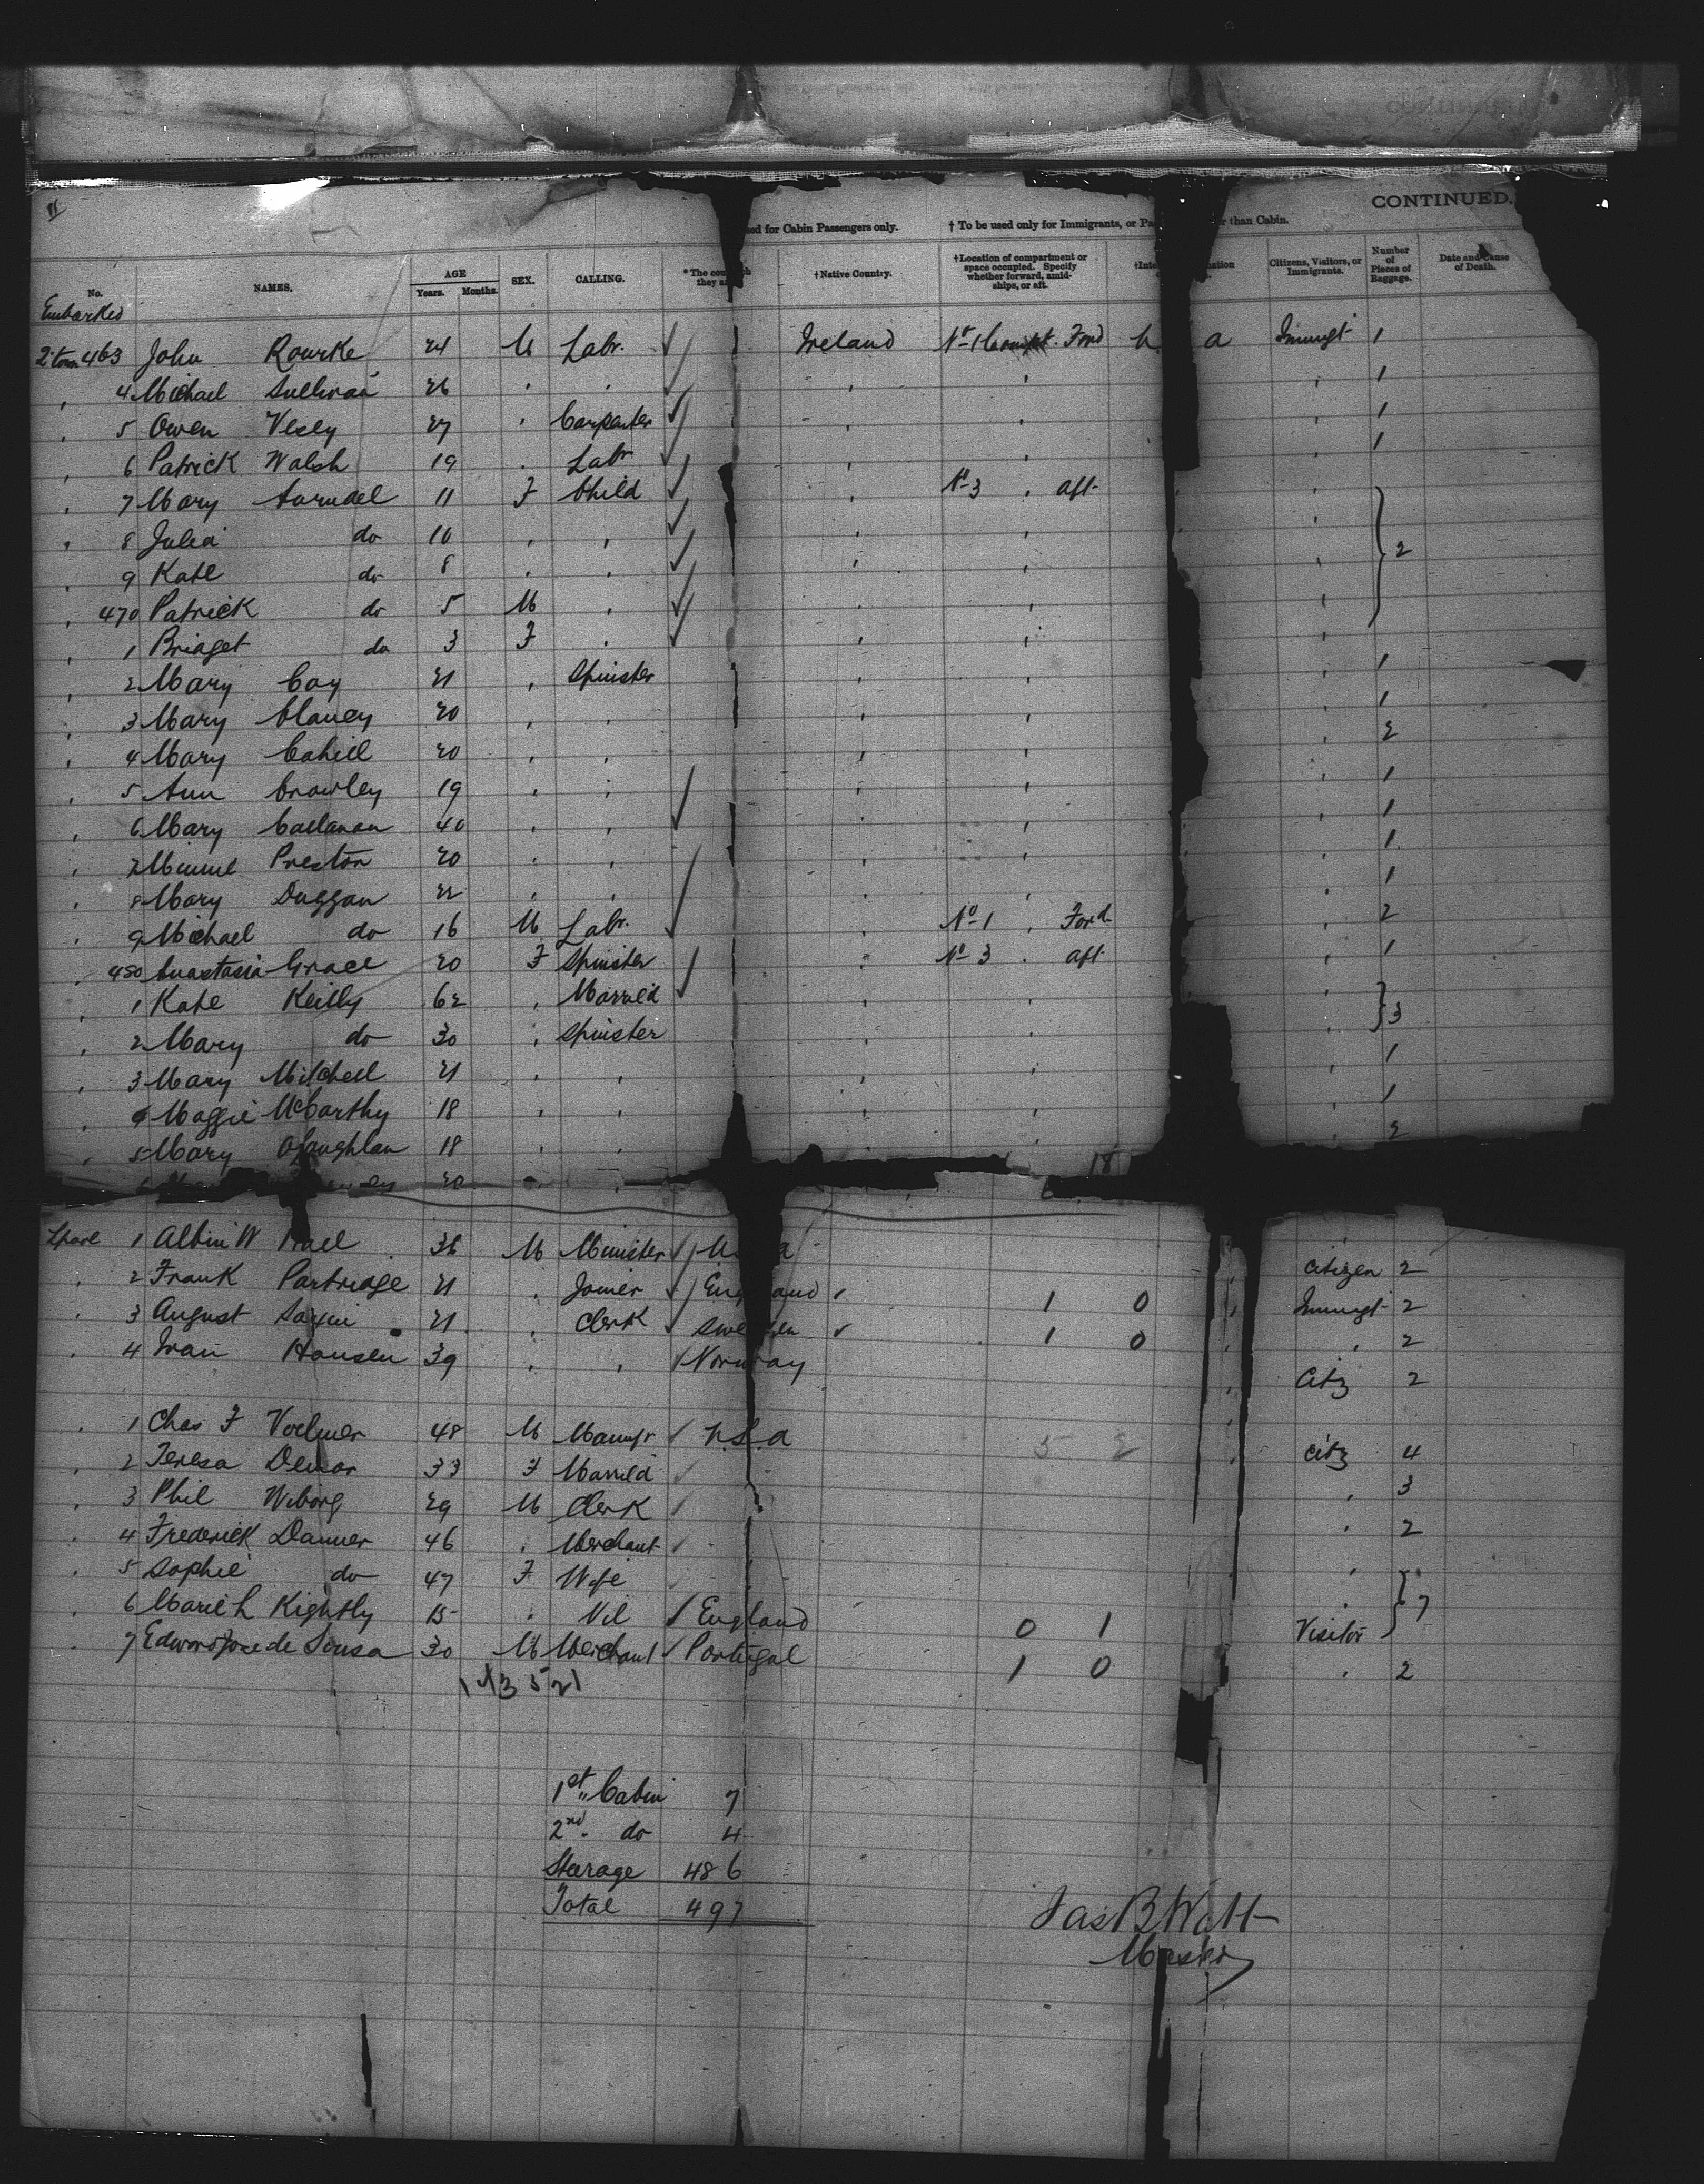 11
CONTINUED.
ed for Cabin Passengers only. † To be used only for Immigrants, or Pa r than Cabin.
No. NAMES. AGE Years. Months. SEX. CALLING. *The cou h they a †Native Country. †Location of compartment or space occupied. Specify whether forward, amidships, or aft. †Inte nation Citizens, Visitors, or Immigrants. Number of Pieces of Baggage. Date and Cause of Death.
Embarked
463 John Rourke 24 M Labr. Ireland No 1 Compt. Ford a Immgt 1
4 Michael Sullivan 26 " " " " " 1
5 Owen Vesey 27 " Carpenter " " " 1
6 Patrick Walsh 19 " Labr " " " 1
7 Mary Arundel 11 F Child " No 3 " aft "
8 Julia do 10 " " " " "
9 Kate do 8 " " " " " 2
470 Patrick do 5 M " " " "
1 Bridget do 3 F " " " "
2 Mary Coy 21 " Spinster " " " 1
3 Mary Clancy 20 " " " " " 1
4 Mary Cahill 20 " " " " " 2
5 Ann Crowley 19 " " " " " 1
6 Mary Callanan 40 " " " " " 1
7 Minnie Preston 20 " " " " " 1
8 Mary Duggan 22 " " " " " 1
9 Michael do 16 M Labr. " No 1 " Ford " 2
480 Anastasia Grace 20 F Spinster " No 3 " aft " 1
1 Kate Reilly 62 " Married " " "
2 Mary do 30 " Spinster " " " 3
3 Mary Mitchell 21 " " " " " 1
4 Maggie McCarthy 18 " " " " " 1
5 Mary O'Loughlan 18 " " " " " 2
20 " "
18
Lpool 1 Albin W 36 M Minister U a citizen 2
" 2 Frank Partridge 21 " Joiner England 1 0 Immgt 2
" 3 August 21 " Clerk Sweden 1 0 " 2
" 4 Ivan Hansen 39 " " Norway Citz 2
" 1 Chas F Voelmer 48 M Manufr U.S.a 5 2 citz 4
" 2 Teresa 33 F Married " " 3
" 3 Phil Wiborg 29 M Clerk " " 2
" 4 Frederick Danner 46 " Merchant " "
" 5 Sophie do 47 F Wife " " 7
" 6 Marie L Kightly 15 " Nil England 0 1 Visitor
" 7 Edward Jose de Sousa 30 M Merchant Portugal 1 0 " 2
1st Cabin 7
2nd do 4
Steerage 486
Total 497
Jas B Watt
Master